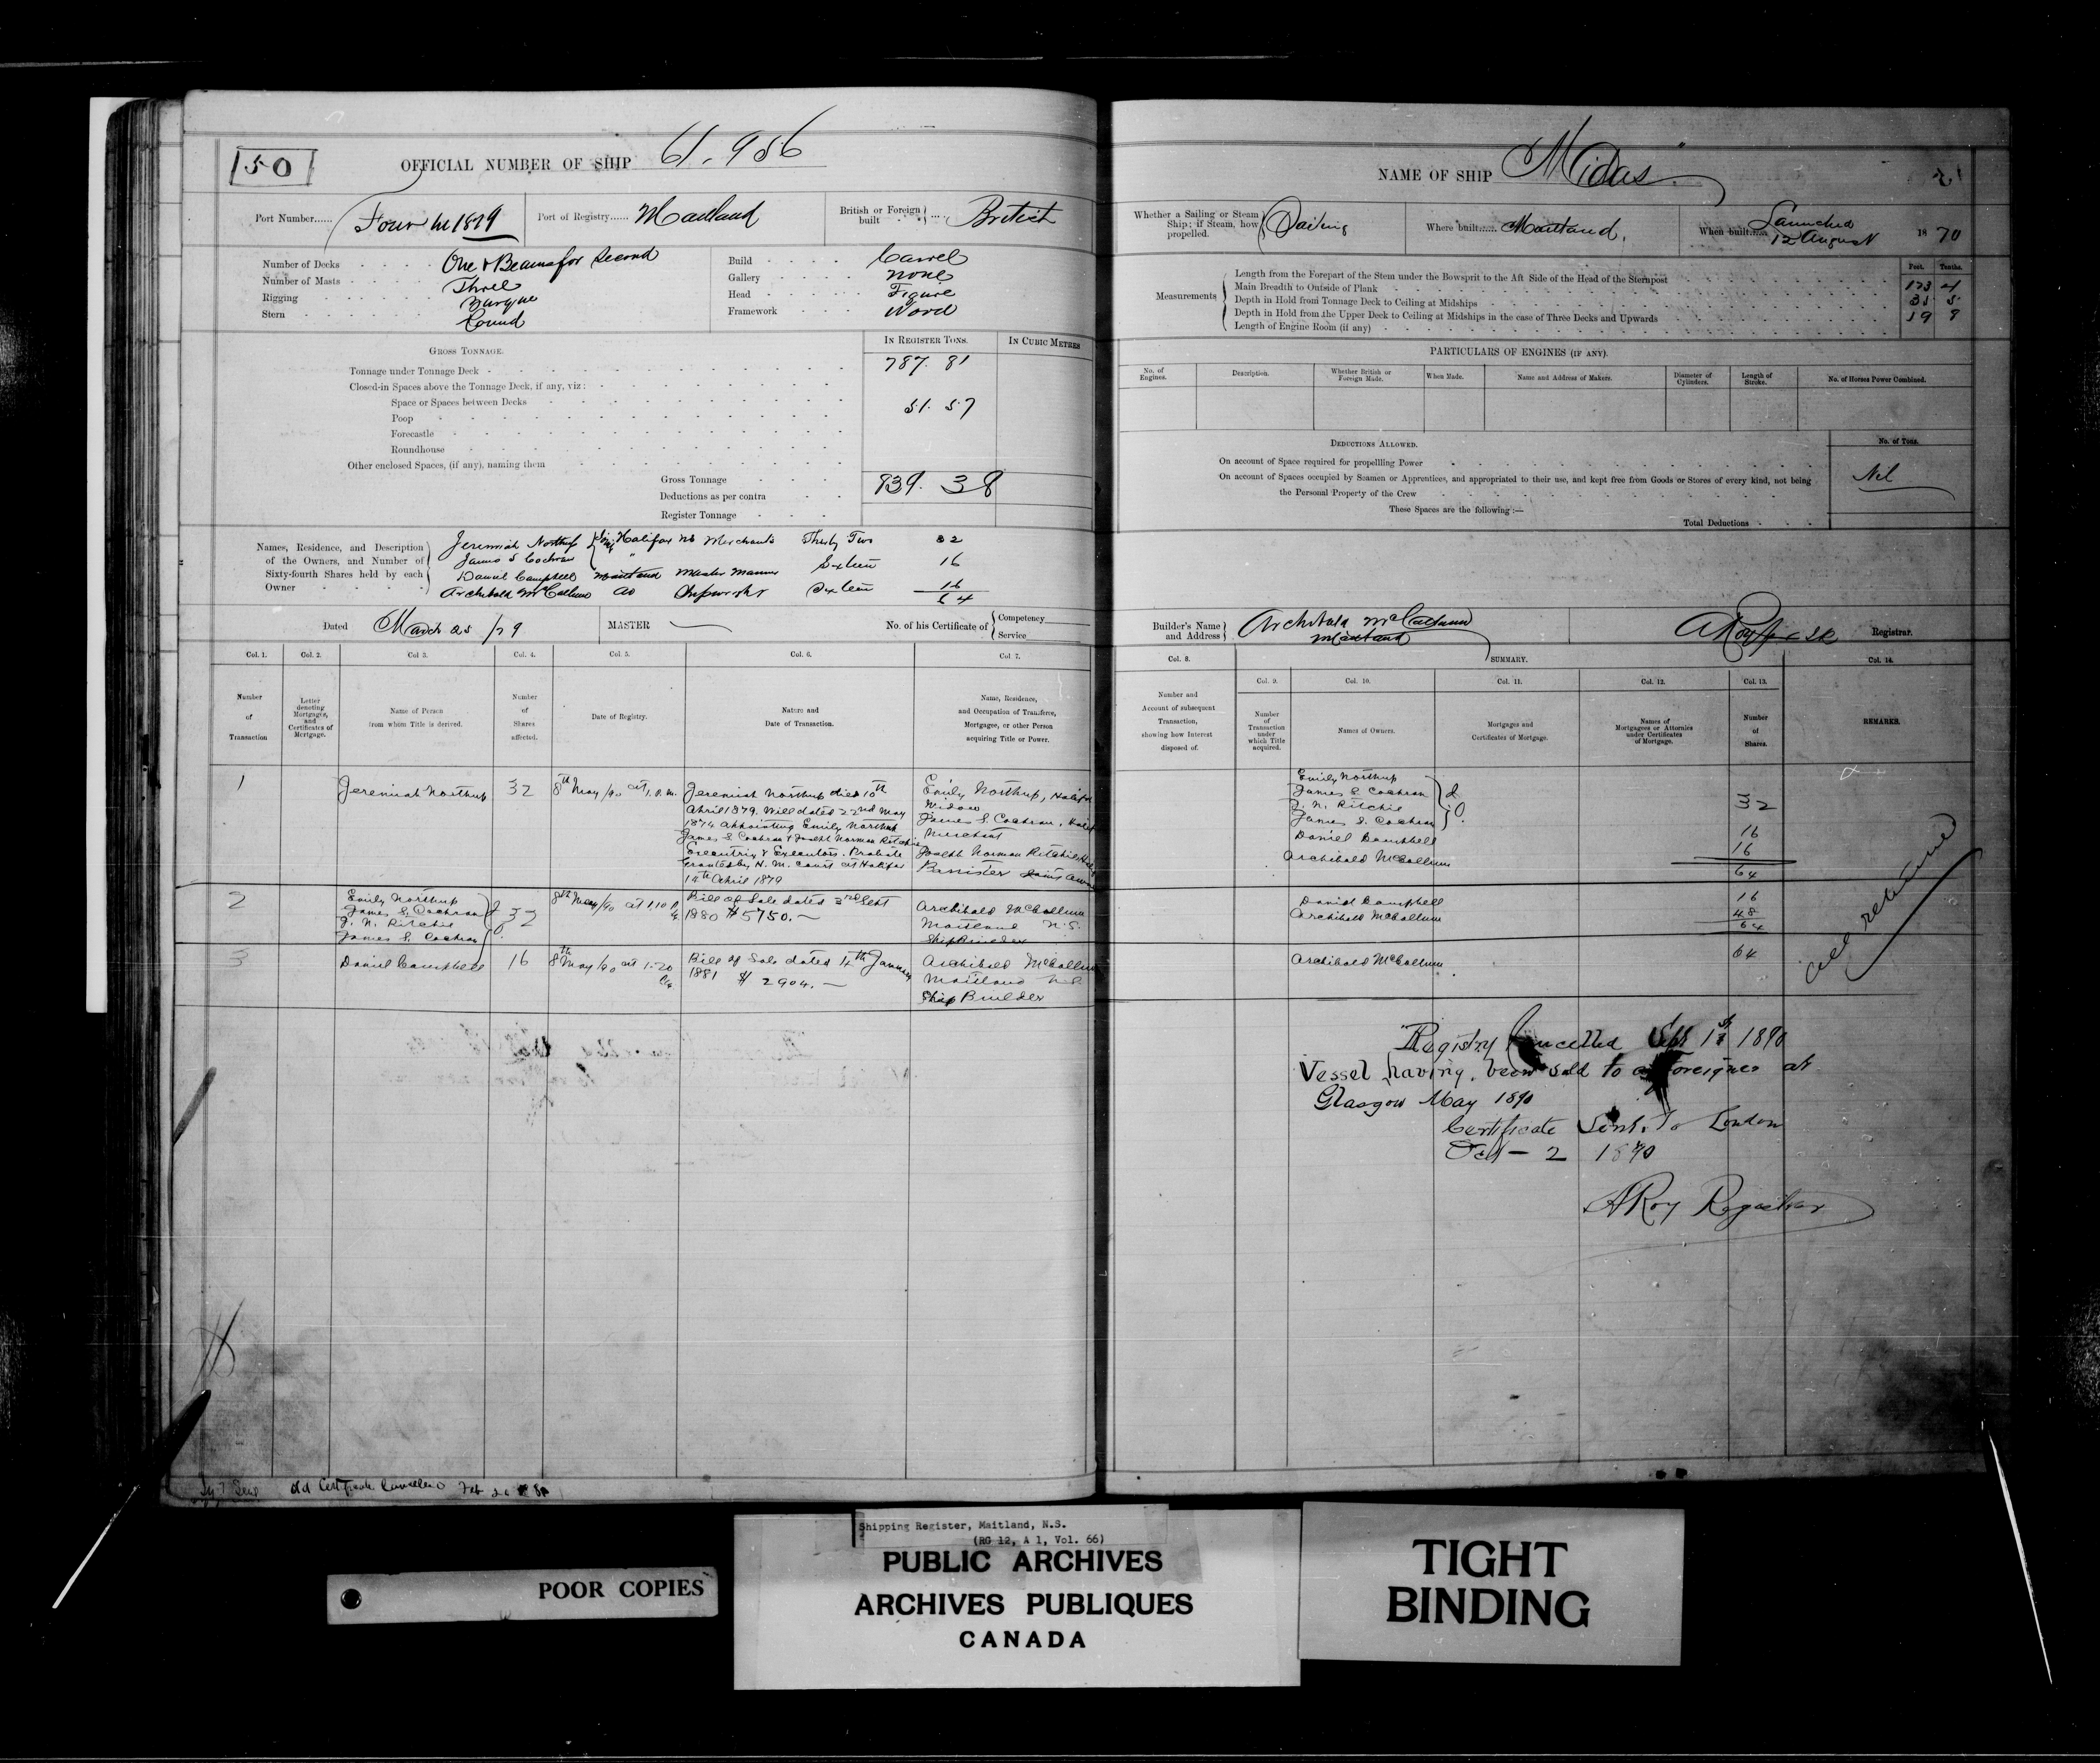 50
OFFICIAL NUMBER OF SHIP 61.956
Port Number...... Four in 1879
Port of Registry...... Maitland
British or Foreign built .... British
Number of Decks One & Beams for Second
Number of Masts Three
Rigging Barque
Stern Round
Build Carvel
Gallery None
Head Figure
Framework Wood
GROSS TONNAGE.
IN REGISTER TONS.
IN CUBIC METRES
Tonnage under Tonnage Deck 787.81
Closed-in Spaces above the Tonnage Deck, if any, viz:
Space or Spaces between Decks 51.57
Poop
Forecastle
Roundhouse
Other enclosed Spaces, (if any), naming them
Gross Tonnage 839.38
Deductions as per contra
Register Tonnage
Names, Residence, and Description of the Owners, and Number of Sixty-fourth Shares held by each Owner
Jeremiah Northup Halifax NS Merchants Thirty Two 32
James S Cochran "
Daniel Campbell Maitland Master Mariner Sixteen 16
Archibald McCallum do Shipwright Sixteen 16
64
Dated March 25/79
MASTER
No. of his Certificate of Competency Service
Col. 1. Col. 2. Col. 3. Col. 4. Col. 5. Col. 6. Col. 7.
Number of Transaction
Letter denoting Mortgages, and Certificates of Mortgage.
Name of Person from whom Title is derived.
Number of Shares affected.
Date of Registry.
Nature and Date of Transaction.
Name, Residence, and Occupation of Transferee, Mortgagee, or other Person acquiring Title or Power.
1
Jeremiah Northup
32
8th May/90 at 1.0 P.M.
Jeremiah Northup died 10th
April 1879. Will dated 22nd May
1874 appointing Emily Northup
James S Cochran & Joseph Norman Ritchie
Executrix & Executors. Probate
Granted by H. M. Court at Halifax
14th April 1879
Emily Northup, Halifax
Widow
James S. Cochran, Halifax
Merchant
Joseph Norman Ritchie, Halifax
Barrister Joint Owners
2
Emily Northup
James S. Cochran
J. N. Ritchie
James S. Cochran
32
8th May/90 at 1.10 P
Bill of Sale dated 3rd Sept
1880 $5750.—
Archibald McCallum
Maitland N.S.
Shipbuilder
3
Daniel Campbell
16
8th May/90 at 1.20
Bill of Sale dated 14th January
1881 $2904.—
Archibald McCallum
Maitland N.S.
Ship Builder
old Certificate Cancelled Feb
NAME OF SHIP "Midas"
Whether a Sailing or Steam Ship; if Steam, how propelled. Sailing
Where built...... Maitland.
When built...... Launched 12 August 1870
Measurements
Feet. Tenths.
Length from the Forepart of the Stem under the Bowsprit to the Aft Side of the Head of the Sternpost 173 4
Main Breadth to Outside of Plank 35 5
Depth in Hold from Tonnage Deck to Ceiling at Midships 19 9
Depth in Hold from the Upper Deck to Ceiling at Midships in the case of Three Decks and Upwards
Length of Engine Room (if any)
PARTICULARS OF ENGINES (IF ANY).
No. of Engines.
Description.
Whether British or Foreign Made.
When Made.
Name and Address of Makers.
Diameter of Cylinders.
Length of Stroke.
No. of Horses Power Combined.
DEDUCTIONS ALLOWED.
No. of Tons.
On account of Space required for propellling Power
On account of Spaces occupied by Seamen or Apprentices, and appropriated to their use, and kept free from Goods or Stores of every kind, not being the Personal Property of the Crew
Nil
These Spaces are the following:—
Total Deductions
Builder's Name and Address Archibald McCallum Maitland
A Roy Registrar.
Col. 8.
SUMMARY.
Col. 9. Col. 10. Col. 11. Col. 12. Col. 13. Col. 14.
Number and Account of subsequent Transaction, showing how Interest disposed of.
Number of Transaction under which Title acquired.
Names of Owners.
Mortgages and Certificates of Mortgage.
Names of Mortgagees or Attornies under Certificates of Mortgage.
Number of Shares.
REMARKS.
Emily Northup
James S Cochran
J. N. Ritchie
James S. Cochran
32
Daniel Campbell 16
Archibald McCallum 16
64
Daniel Campbell 16
Archibald McCallum 48
64
Archibald McCallum 64
all returned
Registry Cancelled Sept 1st 1890
Vessel having been sold to a Foreigner at
Glasgow May 1890
Certificate Sent to London
Oct — 2 1890
A Roy Registrar
Shipping Register, Maitland, N.S.
(RG 12, A 1, Vol. 66)
POOR COPIES
PUBLIC ARCHIVES
ARCHIVES PUBLIQUES
CANADA
TIGHT
BINDING